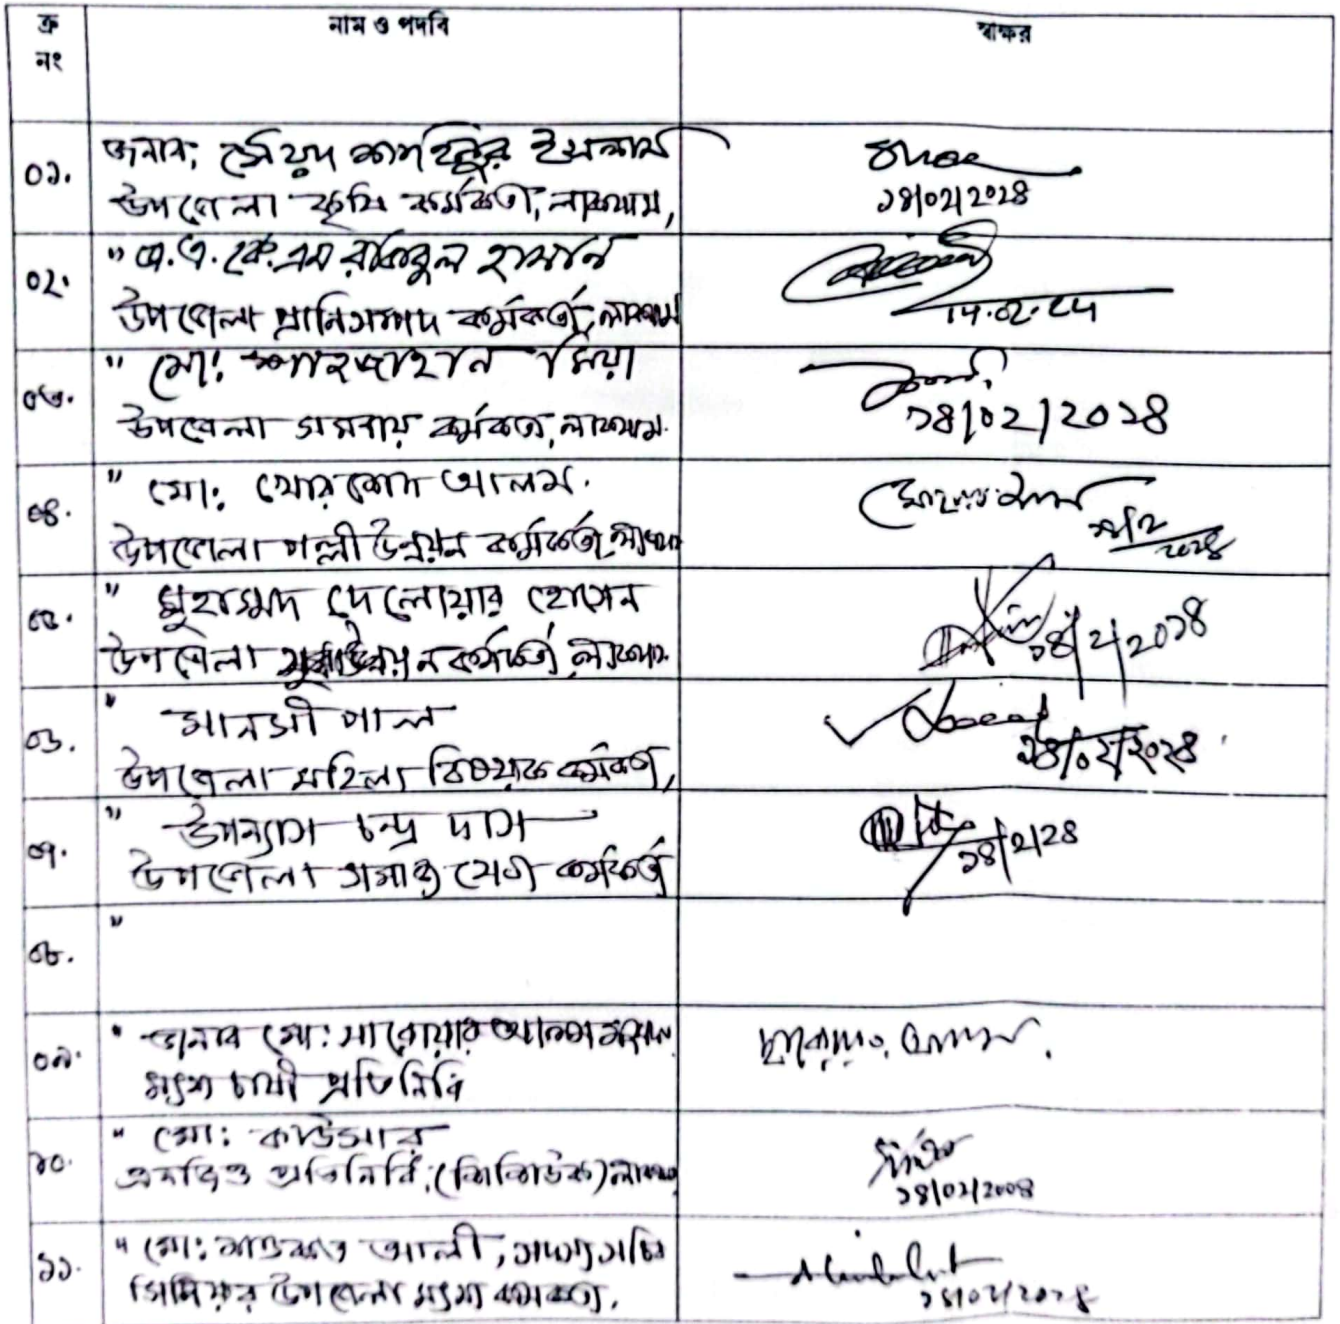 ক্র নং নাম ও পদবি স্বাক্ষর
০১. জনাব, সৈয়দ শাহিনুর ইসলাম
উপজেলা কৃষি কর্মকর্তা, লাকসাম,
১৪/০২/২০২৪
০২. " কে.এম রকিবুল হাসান
উপজেলা প্রানিসম্পদ কর্মকর্তা, লাকসাম
০৩. " মো: শাহজাহান মিয়া
উপজেলা সমবায় কর্মকর্তা, লাকসাম.
১৪/০২/২০২৪
০৪. " মো: খোরশেদ আলম.
উপজেলা পল্লী উন্নয়ন কর্মকর্তা, লাকসাম
০৫. " মুহাম্মদ দেলোয়ার হোসেন
উপজেলা যুব উন্নয়ন কর্মকর্তা, লাকসাম.
১৪/২/২০২৪
০৬. " মানসী পাল
উপজেলা মহিলা বিষয়ক কর্মকর্তা,
১৪/০২/২০২৪
০৭. " উপন্যাস চন্দ্র দাস
উপজেলা সমাজ সেবা কর্মকর্তা
১৪/২/২৪
০৮. "
০৯. " জনাব মো: সারোয়ার আলম
মৎস্য চাষী প্রতিনিধি
১০. " মো: কাউসার
এনজিও প্রতিনিধি,
১১. " মো: শওকত আলী, সদস্য সচিব
সিনিয়র উপজেলা মৎস্য কর্মকর্তা.
১৪/০২/২০২৪